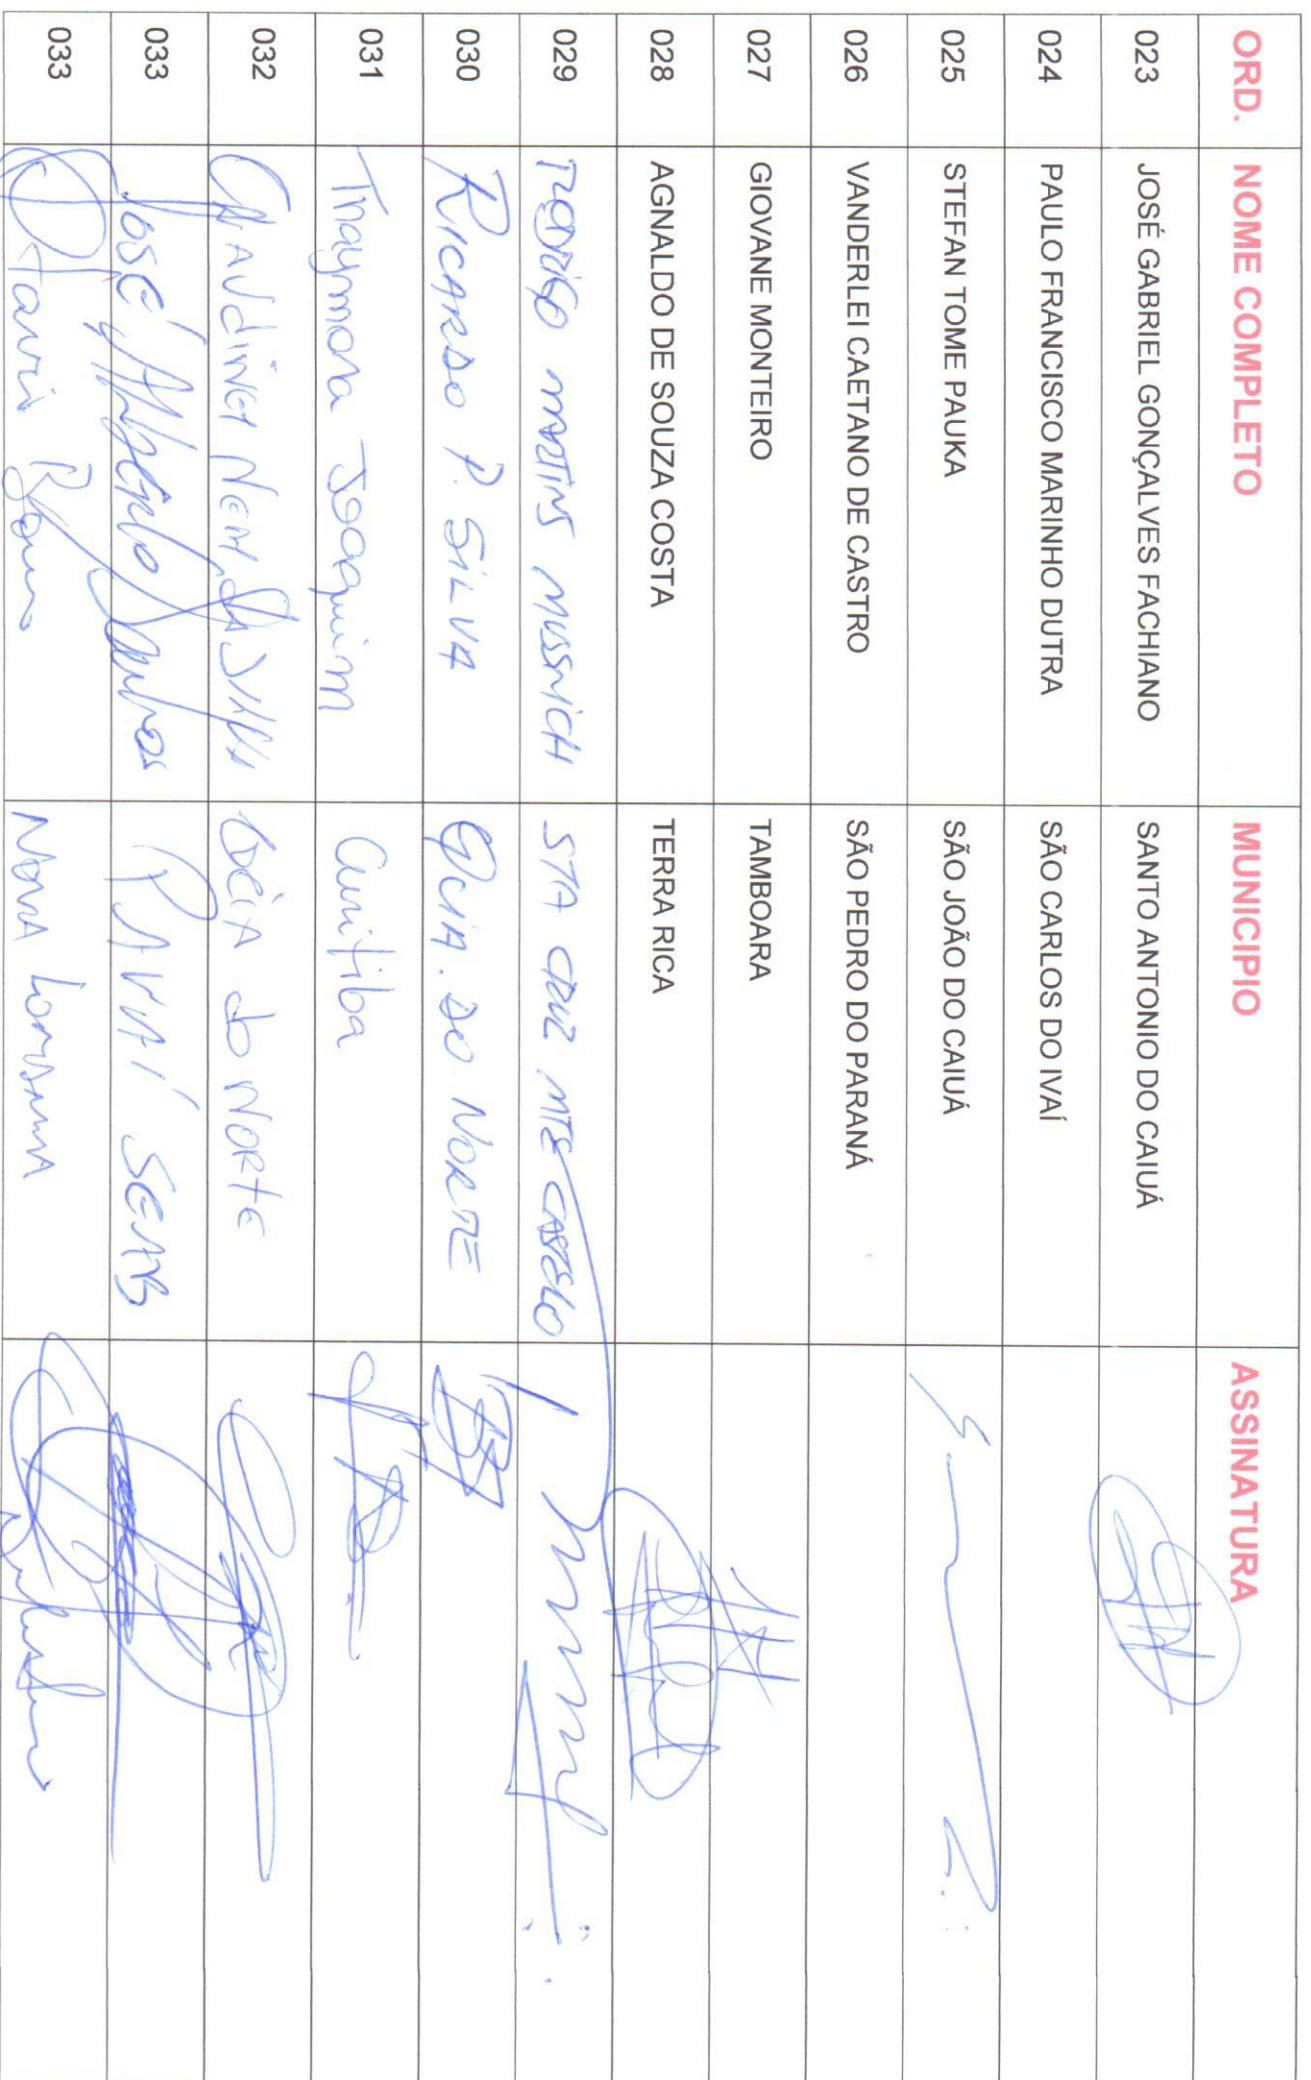 ORD. NOME COMPLETO MUNICIPIO ASSINATURA
023 JOSÉ GABRIEL GONÇALVES FACHIANO SANTO ANTONIO DO CAIUÁ
024 PAULO FRANCISCO MARINHO DUTRA SÃO CARLOS DO IVAÍ
025 STEFAN TOME PAUKA SÃO JOÃO DO CAIUÁ
026 VANDERLEI CAETANO DE CASTRO SÃO PEDRO DO PARANÁ
027 GIOVANE MONTEIRO TAMBOARA
028 AGNALDO DE SOUZA COSTA TERRA RICA
029 RODRIGO MARTINS MUSSNICH STA CRUZ MTE CASTELO
030 RICARDO P. SILVA QCIA. DO NORTE
031 Thaymara Joaquim Curitiba
032 DA SILVA do NORTE
033 José Santos SEAB
033 NOVA LONDRINA